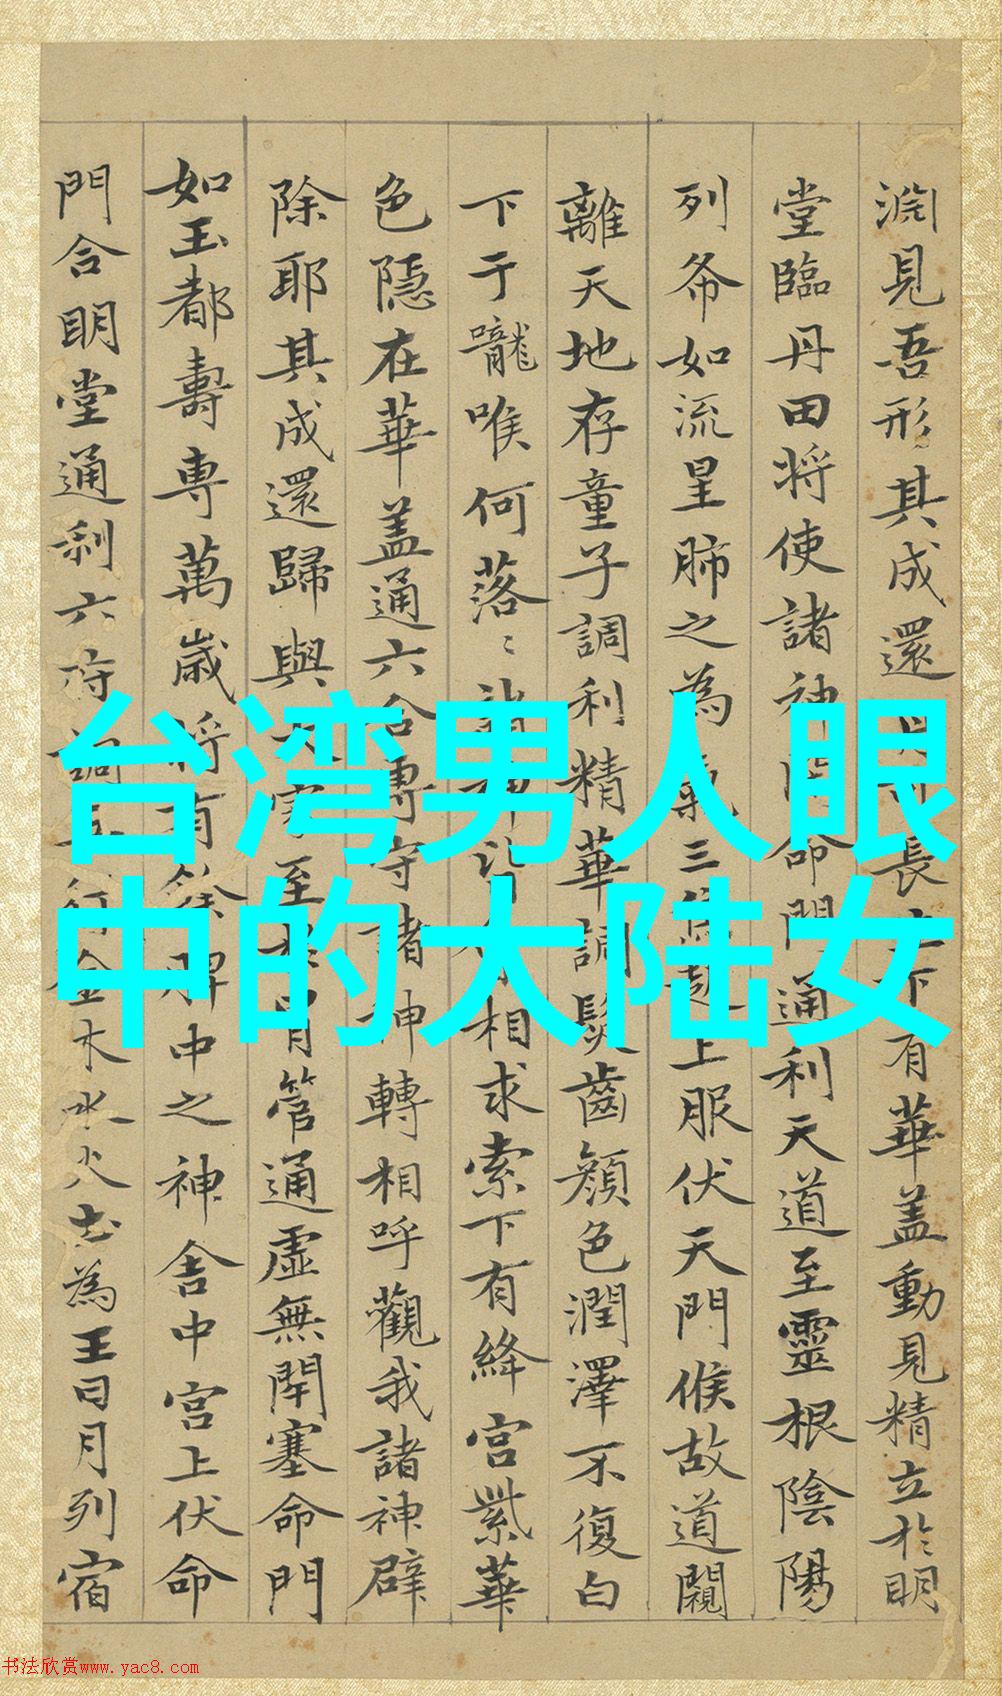 渕見吾形其成還長下有華盖動見精立於明
堂臨丹田将使諸神命門通利天道至靈根陰陽
列布如流星肺之為氣三上服伏天門候故道闚
離天地存童子調利精華調髮齒顔色潤澤不復白
下于嚨喉何落〻諸神相求索下有絳宮紫華
色隱在華盖通六合專守諸神轉相呼觀我諸神辟
除耶其成還歸與至胃管通虛無閉塞命門
如玉都壽專萬歲将有餘脾中之神舍中宮上伏命
門合明堂通利六府調行金木水火土為王日月列宿
台湾男人眼
中的大陆女
书法欣赏www.yac8.com